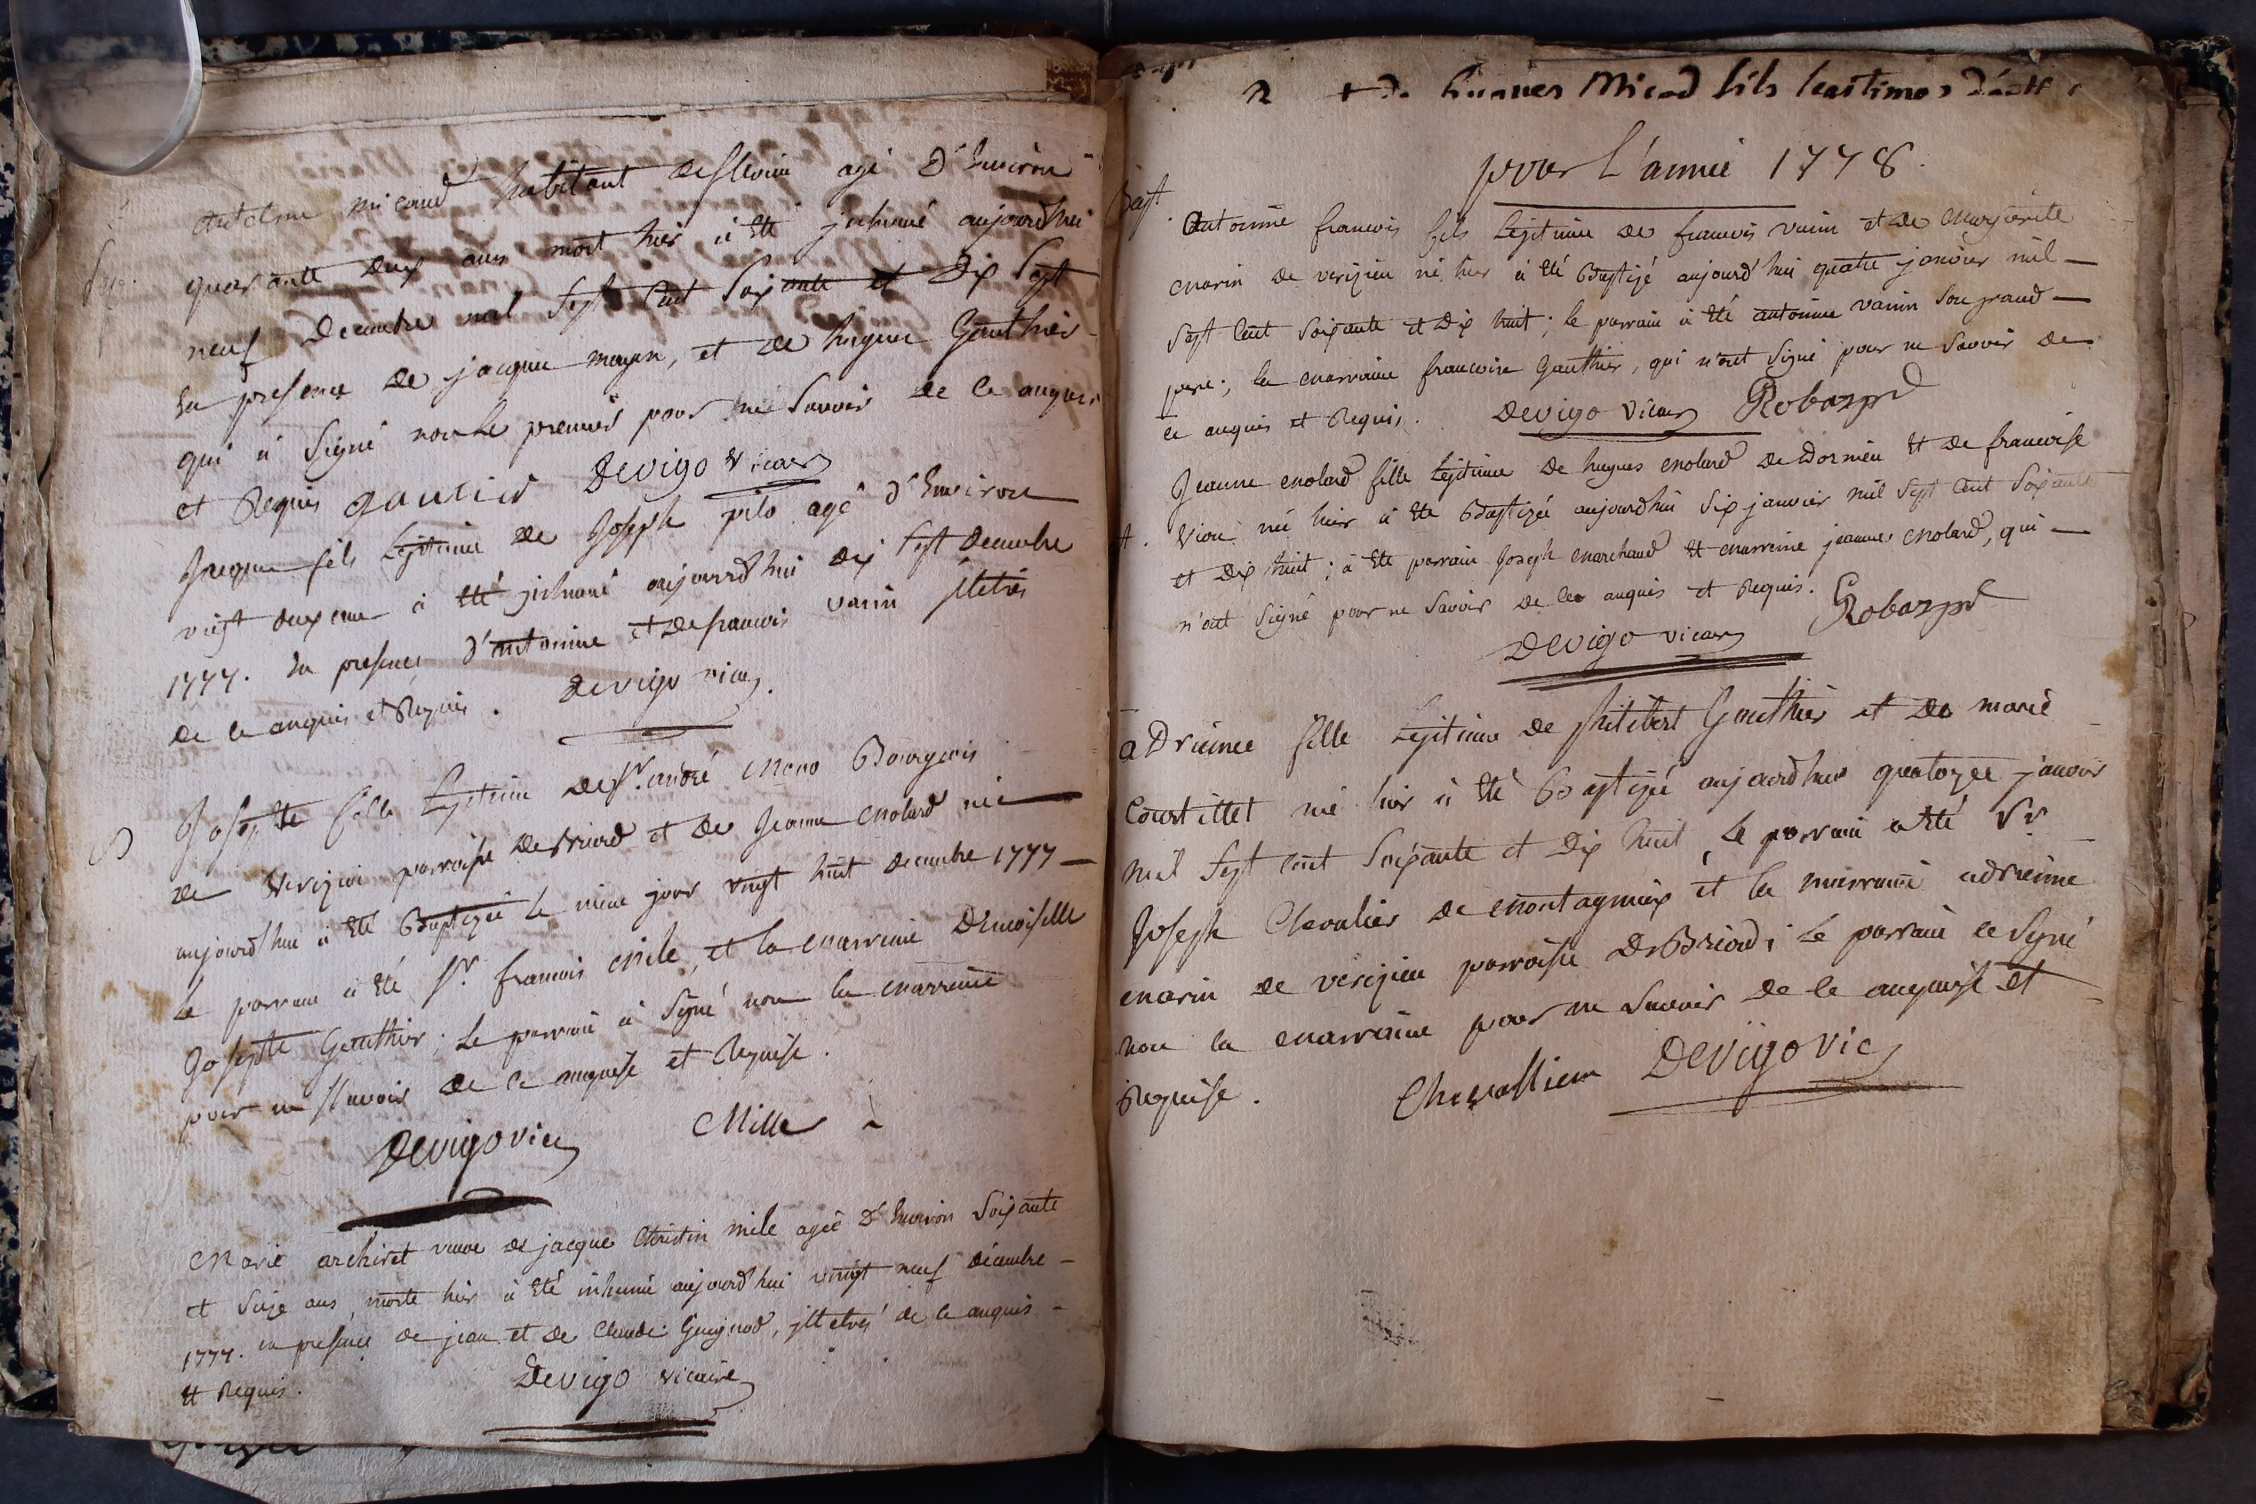 antelme micaud habitant de flevieu agé d'Environ
quarante deux ans mort hier à Eté jnhumé aujourdhui
neuf Decembre mil Sept Cent Soixante et Dix Sept
En presence de jacque mayen, et de hugue Gauthier
qui à Signé non le premier pour ne Savoir de ce anquis
et Requis gautier Devigo Vicar
Jacque fils Legitime de Joseph pilo agé d'Environ
vingt deux ans à Eté jnhumé aujourdhui dix Sept Decembre
1777. En presence d'antoinne et de francois varin jlletrés
de ce anquis et Requis. Devigo vicar
Josepte fille Legitime de Sr. andré Bourgeois
de Verizieu parroisse de Briord et de Jeanne molard née
aujourdhui à Eté Baptizée le même jour vingt huit decembre 1777
Le parrain à Eté Sr. francois mile, et la marraine Demoiselle
Josepte Gauthier; Le parrain à Signé non la marraine
pour ne Savoir de ce anquise et Requise.
Devigo vic Mille
Marie archiret veuve de jacque Christin mile agée D'Environ Soixante
et Seize ans, morte hier à Eté inhumée aujourdhui vingt neuf décembre
1777. en presence de jean et de Claude Guignod, jlletrés de ce anquis
Et Requis. Devigo vicaire
hugues Micod fils legitimes
pour L'année 1778
Bapt.
antoinne francois fils Legitime de francois varin et de Margerite
marin de verizieu né hier à Eté Baptizé aujourd'hui quatre janvier mil
Sept Cent Soixante et Dix huit; le parrain à Eté antoinne varin Son grand
pere; la marraine francoise Gauthier, qui n'ont Signé pour ne Savoir de
ce anquis et Requis. Devigo vicar Robazpd
Jeanne molard fille Legitime de hugues molard de dornieu Et de francoise
Vion née hier à Ete Baptizée aujourdhui Six janvier mil Sept Cent Soixante
et Dix huit; à Ete parrain Joseph marchand Et marreine jeanne molard, qui
n'ont Signé pour ne Savoir de ce anquis et Requis. Robazpd
Devigo vicar
aDrienne fille Legitime de philibert Gauthier et de marie
Courtillet née hier à Eté Baptizée aujourdhui quatorze janvier
mil Sept Cent Soixante et Dix huit, Le parrain a Eté Sr.
Joseph Chevalier de montagnieux et la marraine adrienne
marin de verizieu parroisse de Briord; Le parrain a Signé
non la marraine pour ne Savoir de ce anquise et
Requise. Chevallier Devigo vic